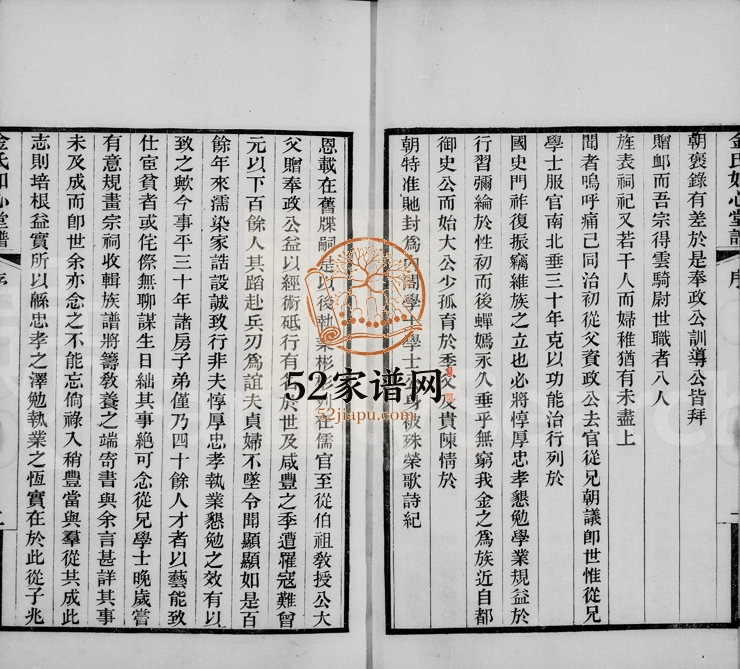 金氏如心堂譜
序
朝襃錄有差於是奉政公訓導公皆拜
贈卹而吾宗得雲騎尉世職者八人
旌表祠祀又若干人而婦稚猶有未盡上
聞者嗚呼痛已同治初從父資政公去官從兄朝議卽世惟從兄
學士服官南北垂三十年克以功能治行列於
國史門祚復振竊維族之立也必將惇厚忠孝懇勉學業規益於
行習彌綸於性初而後蟬嫣永久垂乎無窮我金之爲族近自都
御史公而始大公少孤育於季父及貴陳情於
朝特准貤封爲內閣學士學士公身被殊榮歌詩紀
恩載在舊牒嗣是以後執業彬彬列在儒官至從伯祖敎授公大
父贈奉政公益以經術砥行有稱於世及咸豐之季遭罹寇難曾
元以下百餘人其蹈赴兵刃爲誼夫貞婦不墜令聞顯顯如是百
餘年來濡染家誥設誠致行非夫惇厚忠孝執業懇勉之效有以
致之歟今事平三十年諸房子弟僅乃四十餘人才者以藝能致
仕宦貧者或侘傺無聊謀生日絀其事絶可念從兄學士晚歲嘗
有意規畫宗祠收輯族譜將籌敎養之端寄書與余言甚詳其事
未及成而卽世余亦念之不能忘倘祿入稍豐當與羣從其成此
志則培根益實所以緜忠孝之澤勉執業之恆實在於此從子兆
金氏如心堂譜
序
52家谱网
52jiapu.com